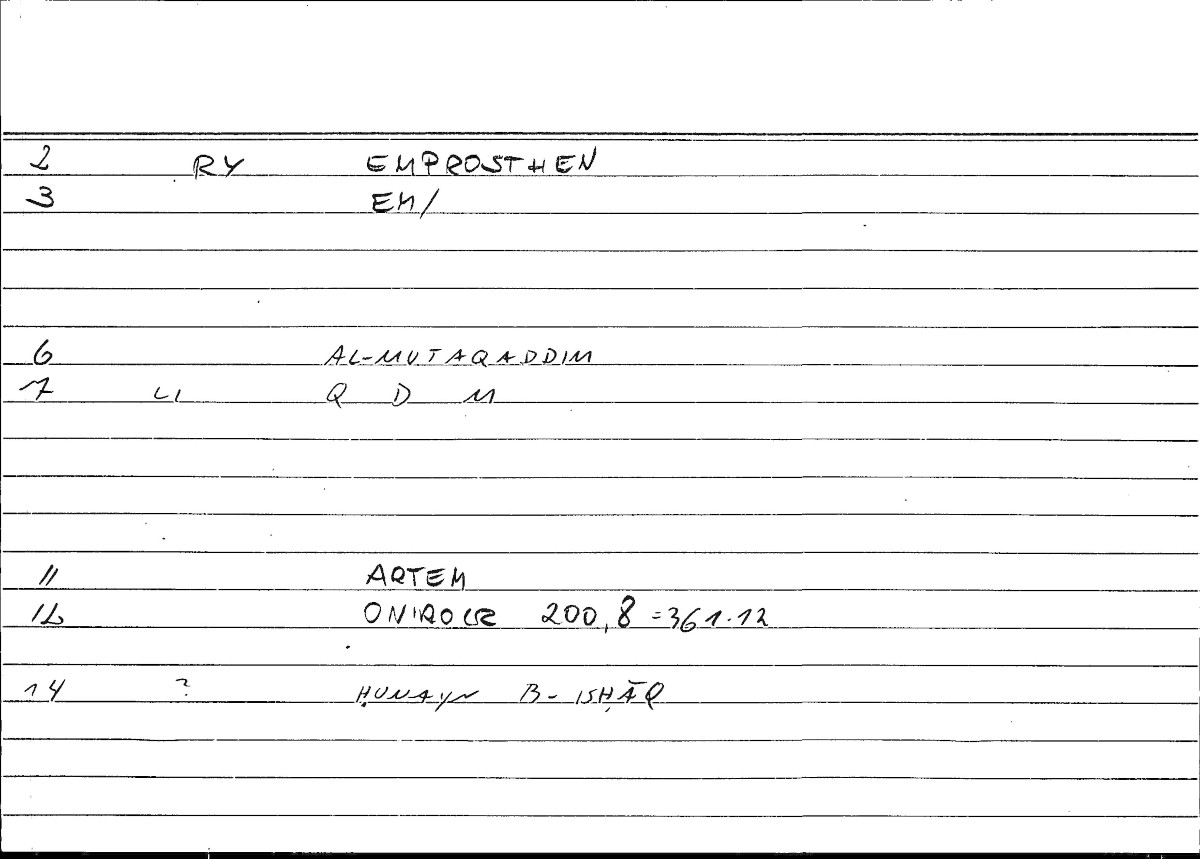 2 RY EMPROSTHEN
3 EM/
6 AL-MUTAQADDIM
7 LI Q D M
11 ARTEM
12 ONIROCR 200,8 =361.12
14 ? ḤUNAYN B- ISḤĀQ